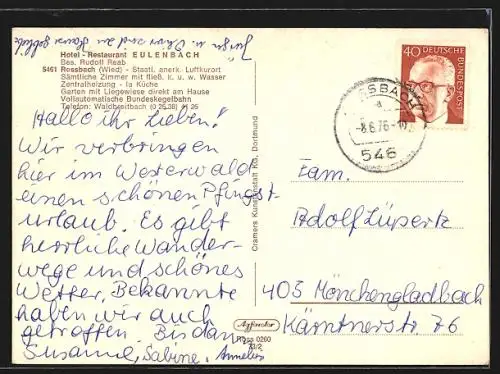 Jürgen u. Oliver sind zu Hause geblieb.
Hotel - Restaurant EULENBACH
Bes. Rudolf Reab
5461 Rossbach (Wied) - Staatl. anerk. Luftkurort
Sämtliche Zimmer mit fließ. k. u. w. Wasser
Zentralheizung - la Küche
Garten mit Liegewiese direkt am Hause
Vollautomatische Bundeskegelbahn
Telefon: Waldbreitbach (0 26 38) 41 25
Hallo ihr Lieben!
Wir verbringen
hier im Westerwald
einen schönen Pfingst
urlaub. Es gibt
herrliche Wander-
wege und schönes
Wetter. Bekannte
haben wir auch
getroffen. Bis dann
Susanne, Sabine. Annelies
Cramers Kunstanstalt KG, Dortmund
40 DEUTSCHE
BUNDESPOST
SSBACH
a
-8.6.76-
546
Fam.
Adolf Lüpertz
403 Mönchengladbach
Kärntnerstr. 76
Ross 0260